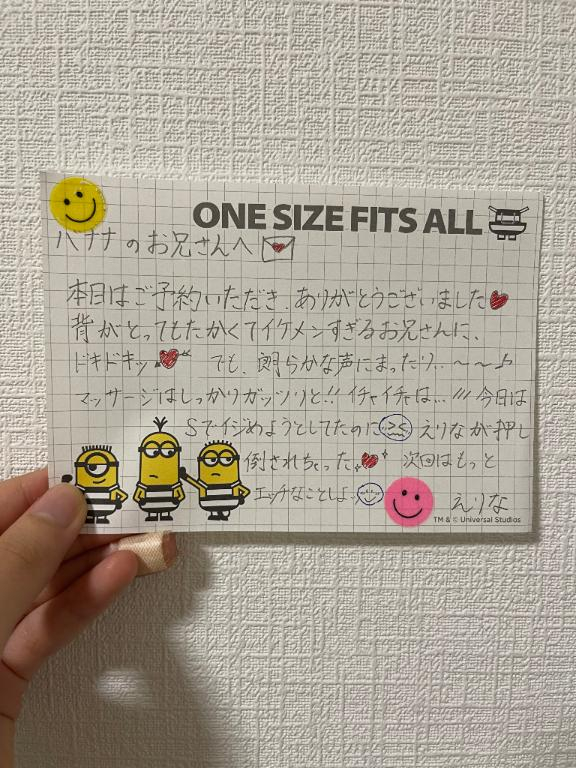 ONE SIZE FITS ALL
バナナのお兄さんへ
本日はご予約いただき、ありがとうございました
背がとってもたかくてイケメンすぎるお兄さんに、
ドキドキッ でも、朗らかな声にまったり、～～♪
マッサージはしっかりガッツリと!! イチャイチャは…/// 今日は
Sでイジめようとしてたのに えりなが押し
倒されちゃった 次回はもっと
エッチなことしよ えりな
TM & © Universal Studios